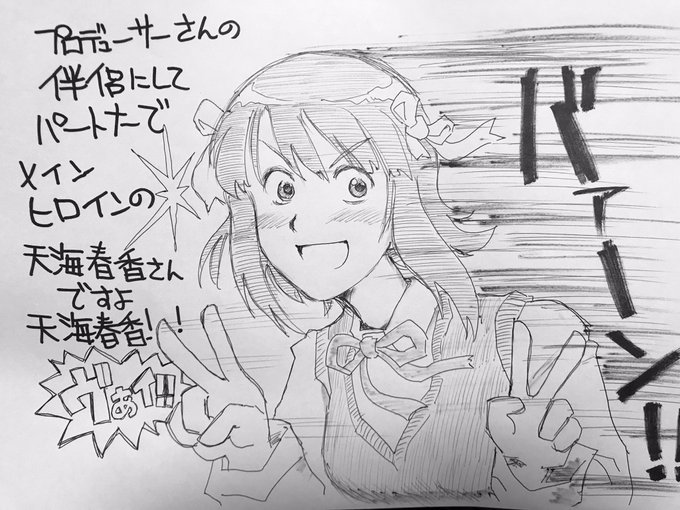 プロデューサーさんの
伴侶にして
パートナーで
メイン
ヒロインの
天海春香さん
ですよ
天海春香!!
バァーン!!